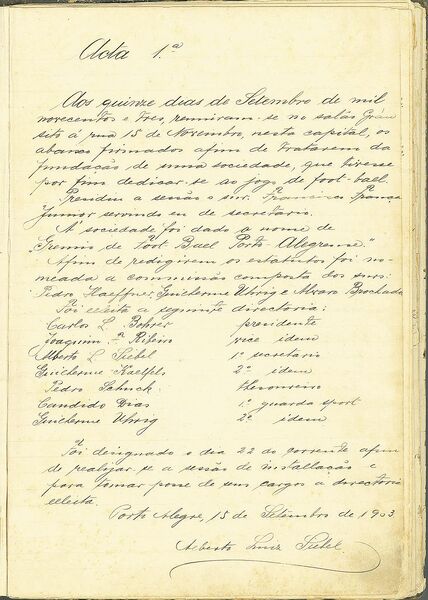 Acta 1.ª
Aos quinze dias de Setembro de mil
novecentos e tres, reuniram-se no salão Grau
sito á rua 15 de Novembro, nesta capital, os
abaixo firmados afim de tratarem da
fundação de uma sociedade, que tivesse
por fim dedicar-se ao jogo de foot-ball.
Presidiu a sessão o snr. Francisco França
Junior servindo eu de secretario.
A sociedade foi dado a nome de
"Gremio de Foot Ball Porto-Alegrense"
Afim de redigirem os estatutos foi no-
meada a commissão composta dos snrs:
Pedro Haeffner, Guilherme Uhrig e Alvaro Brochado
Foi eleita a seguinte directoria:
Carlos L. Bohrer presidente
Joaquim F.ª Ribeiro vice idem
Alberto L Siebel 1º secretario
Guilherme Kallfelz 2º idem
Pedro Schuck thesoureiro
Candido Dias 1º guarda sport
Guilherme Uhrig 2º idem
Foi designado o dia 22 do corrente afim
de realizar-se a sessão de installação e
para tomar posse de seus cargos a directoria
eleita.
Porto Alegre, 15 de Setembro de 1903
Alberto Luiz Siebel